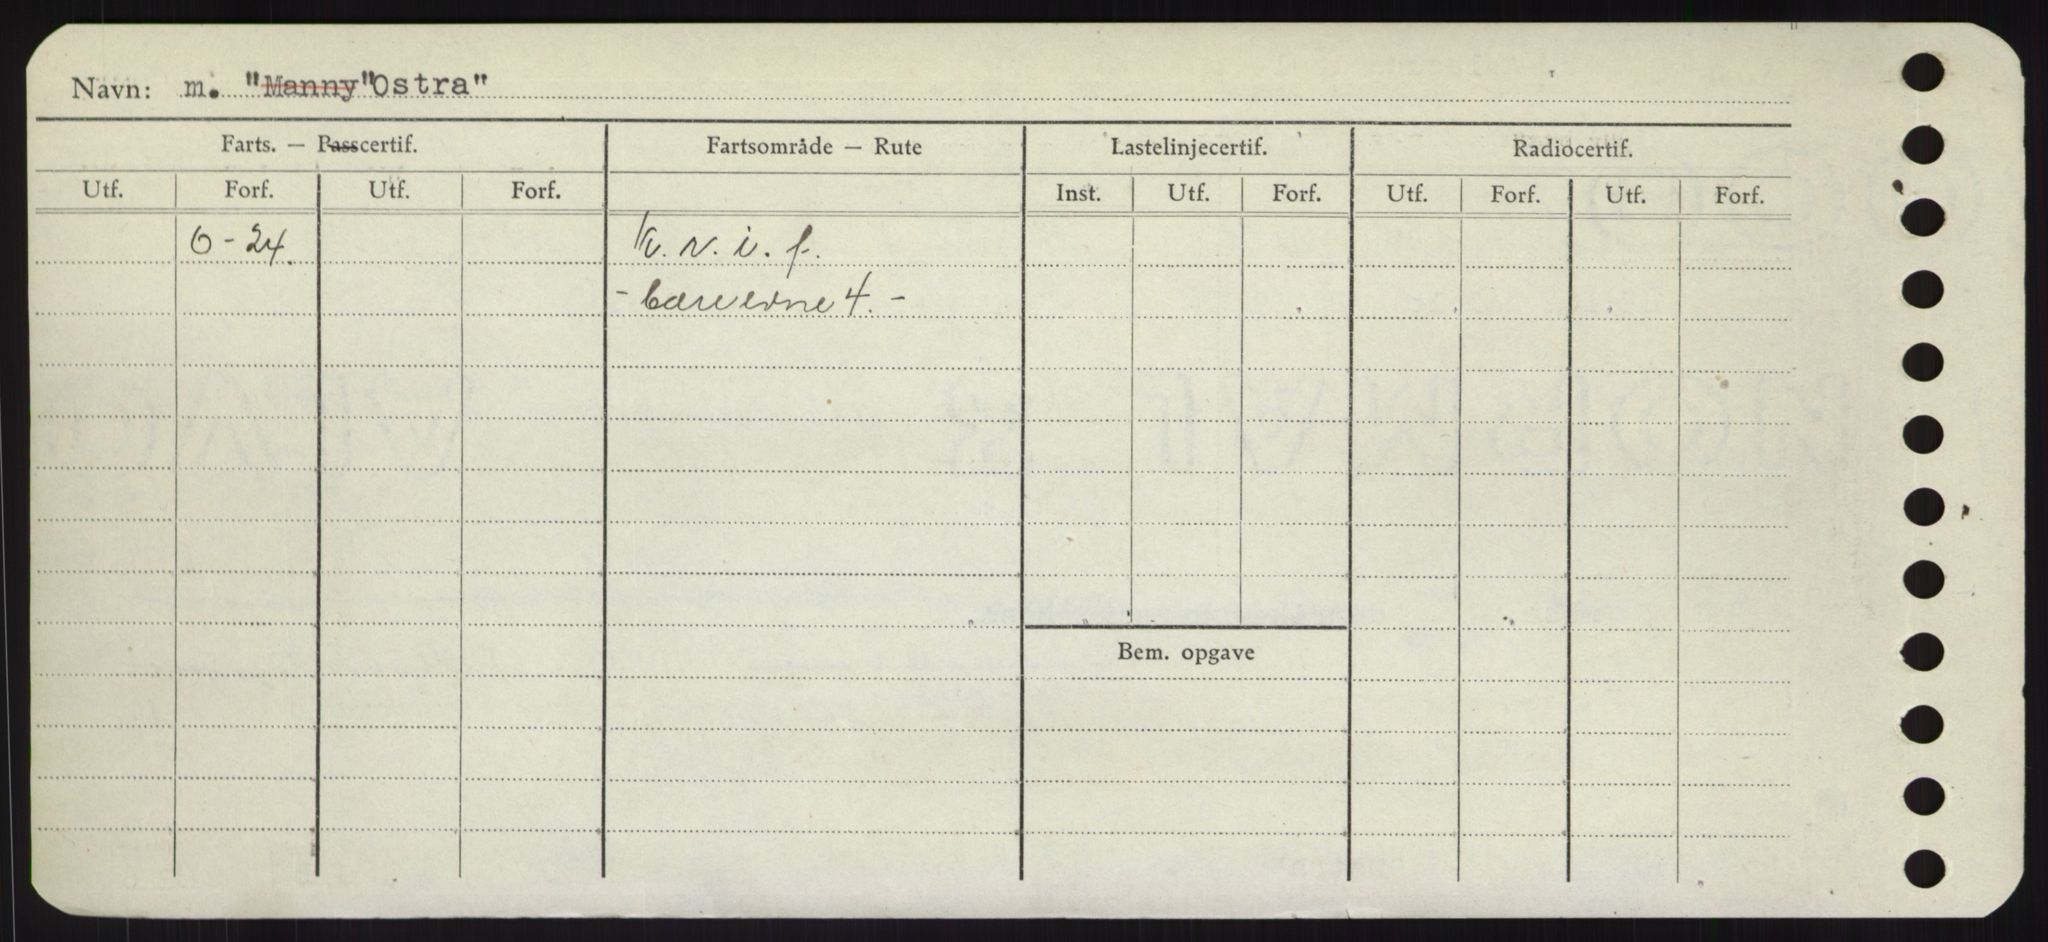 Navn: m. "Manny" "Ostra"
Farts. — Passcertif. Fartsområde — Rute Lastelinjecertif. Radiocertif.
Utf. Forf. Utf. Forf. Inst. Utf. Forf. Utf. Forf. Utf. Forf.
6-24. K.v.i.f.
- bæreevne 4. -
Bem. opgave